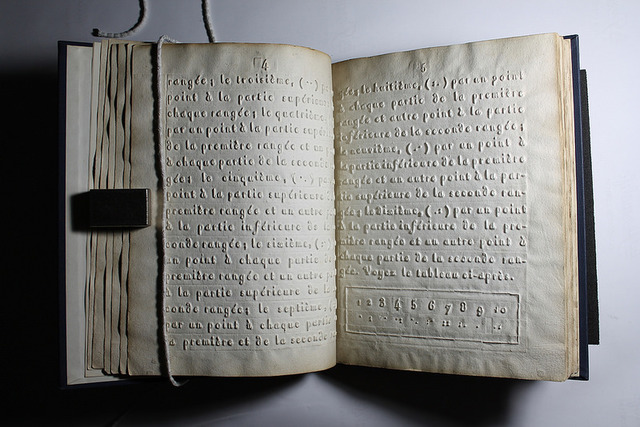 4
rangée; le troisième, (··)
point à la partie supérieur
chaque rangée; le quatrième
par un point à la partie supé
de la première rangée et un
à chaque partie de la seconde
gée; le cinquième,
point à la partie supérieure
première rangée et un autre
à la partie inférieure de
conde rangée; le sixième,
un point à chaque partie
première rangée et un autre
à la partie supérieure de
conde rangée; le septième,
par un point à chaque partie
la première et de la seconde
gée; le huitième, (:.) par un point
à chaque partie de la première
rangée et autre point à la partie
inférieure de la seconde rangée;
neuvième, (.·) par un point à
partie inférieure de la première
rangée et un autre point à la par-
tie supérieure de la seconde ran-
gée; le dixième, (.:) par un point
à la partie inférieure de la pre-
mière rangée et un autre point à
chaque partie de la seconde ran-
gée. Voyez le tableau ci-après.
1 2 3 4 5 6 7 8 9 10